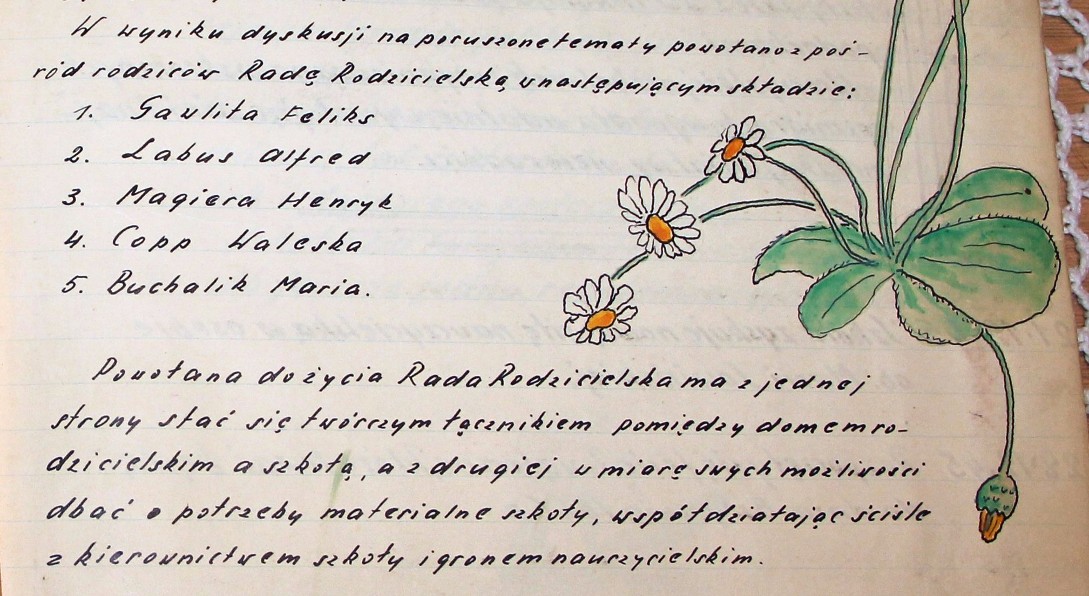 W wyniku dyskusji na poruszone tematy powołano z poś-
ród rodziców Radę Rodzicielską w następującym składzie:
1. Gawlita Feliks
2. Labus Alfred
3. Magiera Henryk
4. Copp Waleska
5. Buchalik Maria.
Powołana do życia Rada Rodzicielska ma z jednej
strony stać się twórczym łącznikiem pomiędzy domem ro-
dzicielskim a szkołą, a z drugiej w miarę swych możliwości
dbać o potrzeby materialne szkoły, współdziałając ściśle
z kierownictwem szkoły i gronem nauczycielskim.